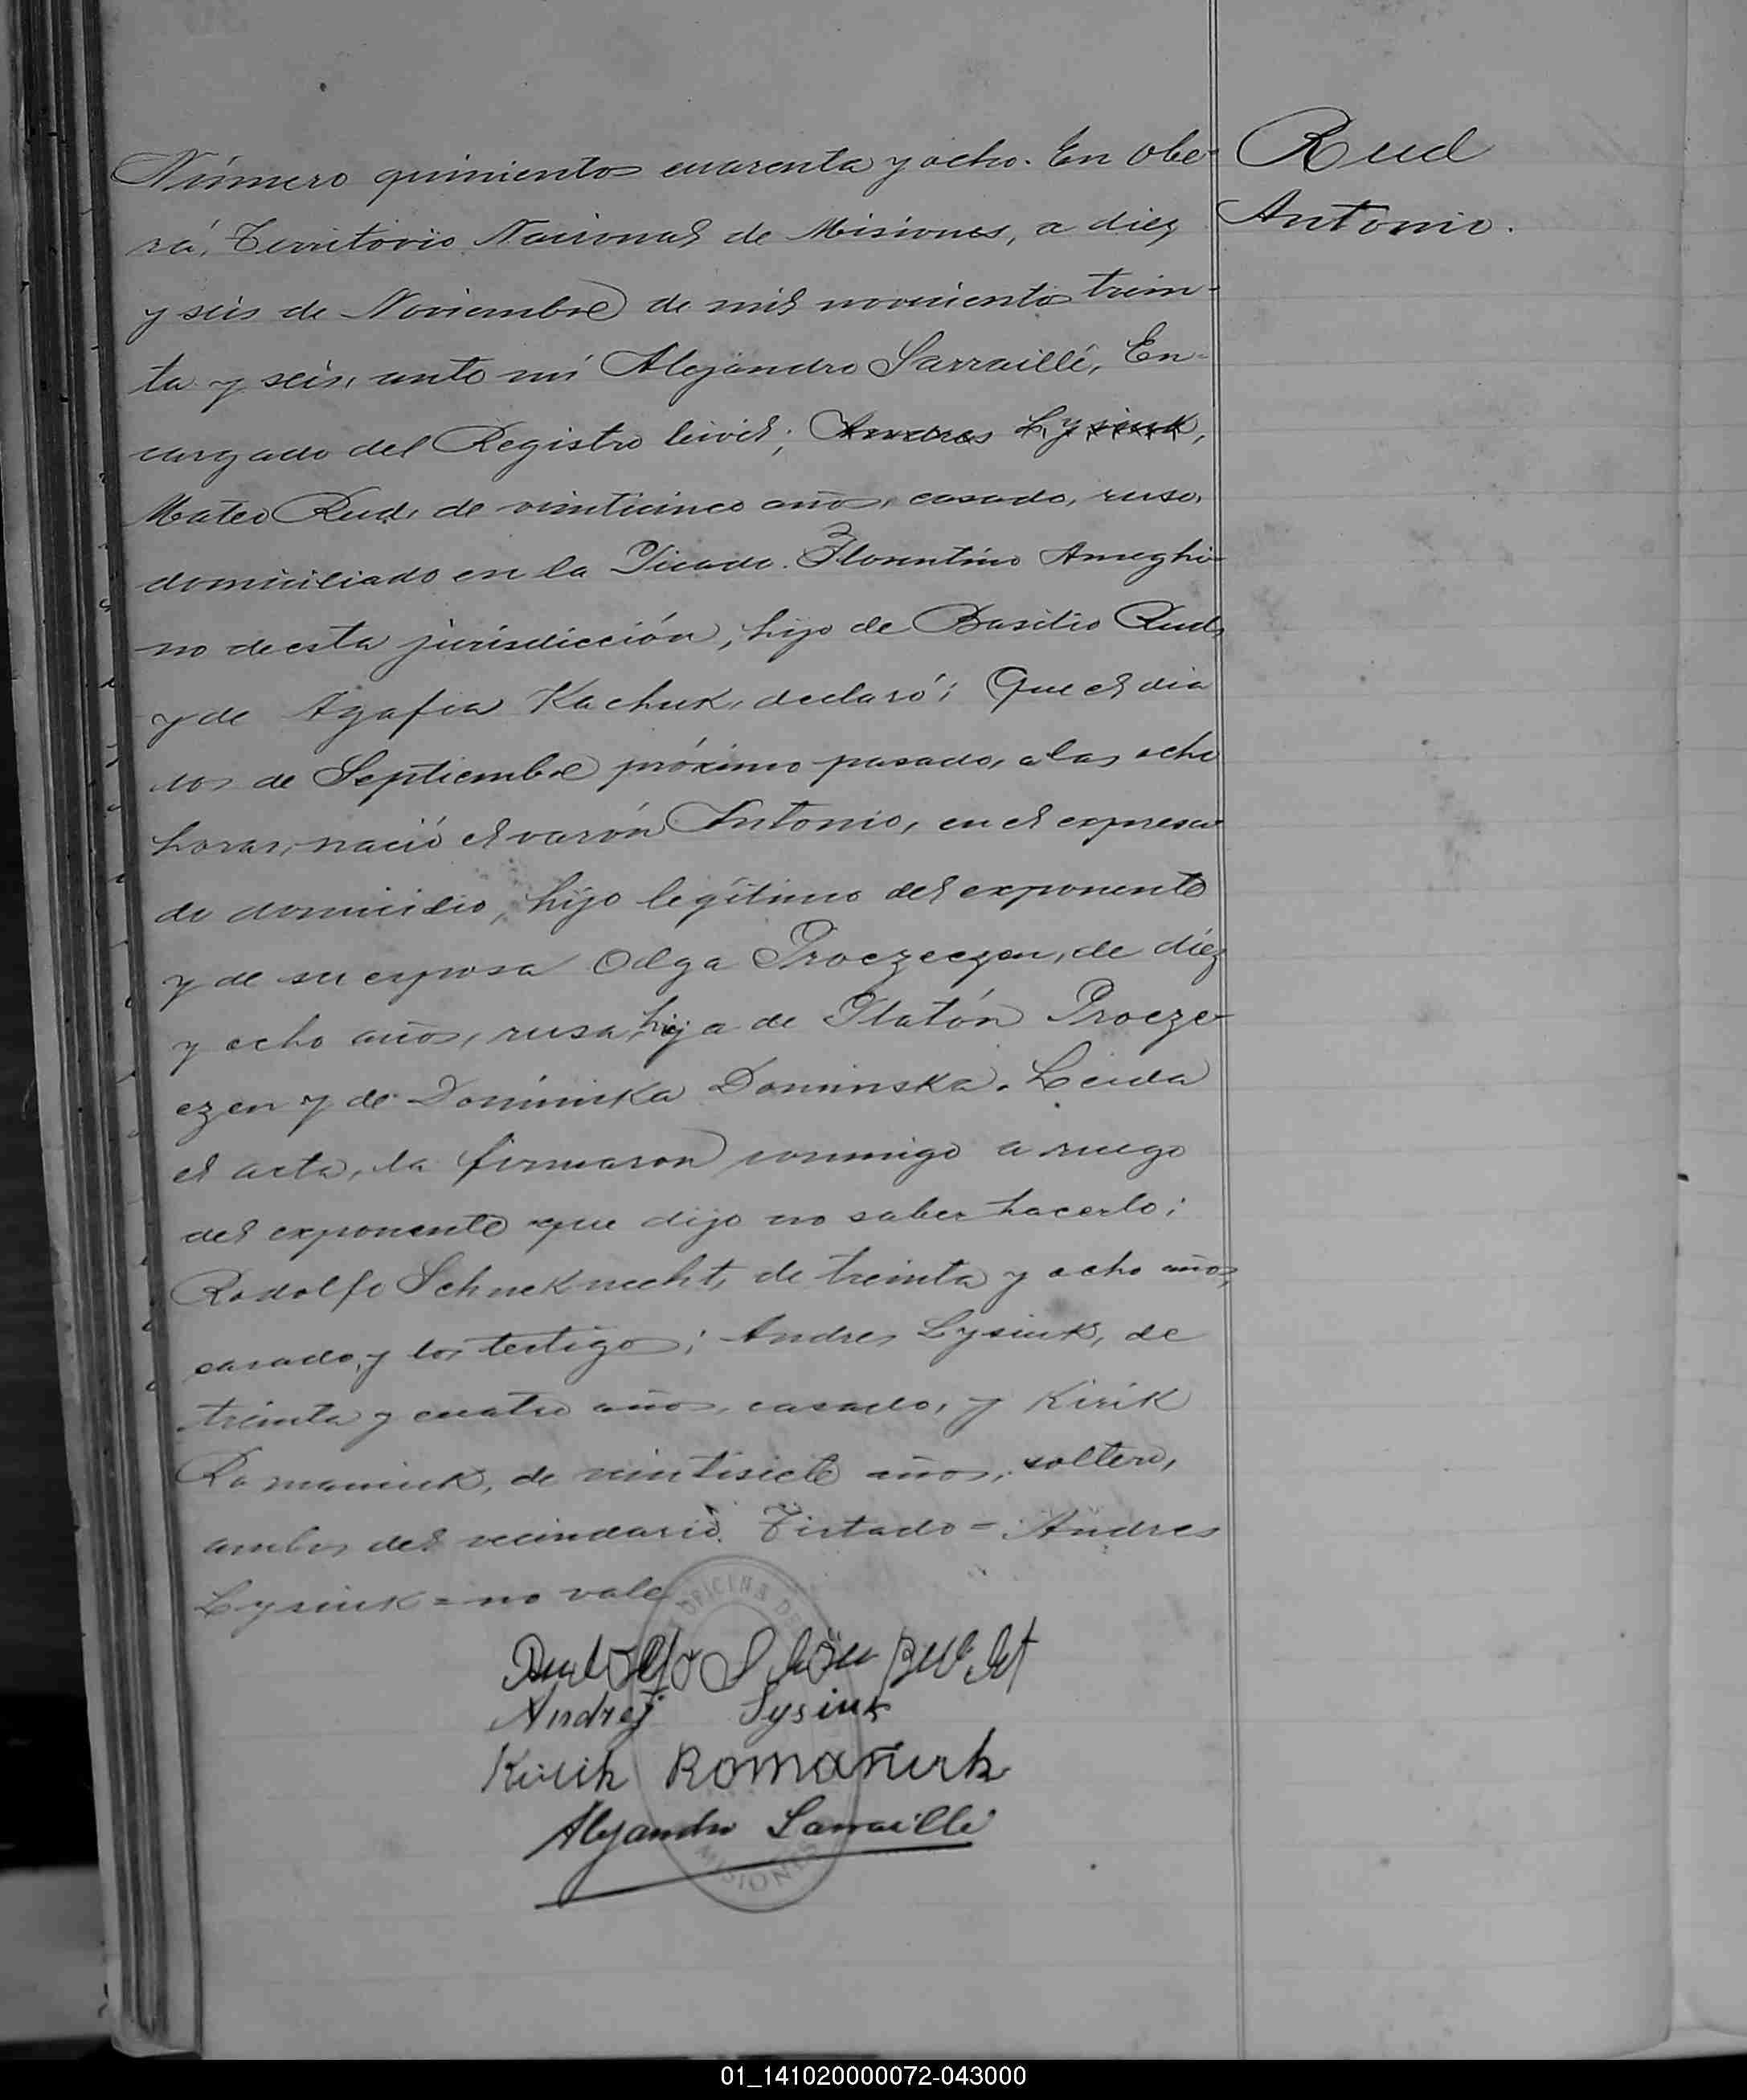 Número quinientos cuarenta y ocho. En Obe-
rá, Territorio Nacional de Misiones, a diez
y seis de Noviembre de mil novecientos trein-
ta y seis, ante mí Alejandro Sarraillé, En-
cargado del Registro Civil; Andres Lysiuk,
Mateo Rud, de veinticinco años, casado, ruso,
domiciliado en la Picada. Florentino Ameghi-
no de esta jurisdicción, hijo de Basilio Rud,
y de Agafia Kachuk, declaró: Que el dia
dos de Septiembre próximo pasado, a las ocho
horas, nació el varón Antonio, en el expresa-
do domicilio, hijo legítimo del exponente
y de su esposa Olga Proczeczen, de diez
y ocho años, rusa, hija de Platón Procze-
czen y de Dominika Dominska. Leida
el acta, la firmaron conmigo a ruego
del exponente que dijo no saber hacerlo;
Rodolfo Schneknecht, de treinta y ocho años,
casado, y los testigos; Andres Lysiuk, de
treinta y cuatro años, casado, y Kirik
Romaniuk, de veintisiete años, soltero,
ambos del vecindario. Testado = Andres
Lysiuk = no vale
Andrej Lysiuk
Kirik Romaniuk
Alejandro Sarraillé
OFICINA DE
MISIONES
Rud
Antonio.
01_141020000072-043000